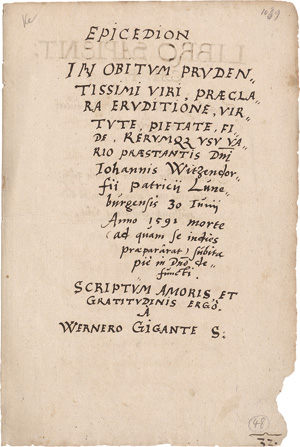 Ke
EPICEDION
IN OBITUM PRUDEN„
TISSIMI VIRI, PRÆCLA„
RA ERUDITIONE, VIR„
TUTE, PIETATE, FI„
DE, RERUMQꝫ USU VA„
RIO PRÆSTANTIS Dñi
Iohannis Witzendor„
fii Patricii Lune„
burgensis 30 Iunij
Anno 1591 morte
(ad quam se indies
præpararat) subita
piè in Dño de„
functi.
SCRIPTUM AMORIS ET
GRATITUDINIS ERGÒ
A
WERNERO GIGANTE S:
(48)